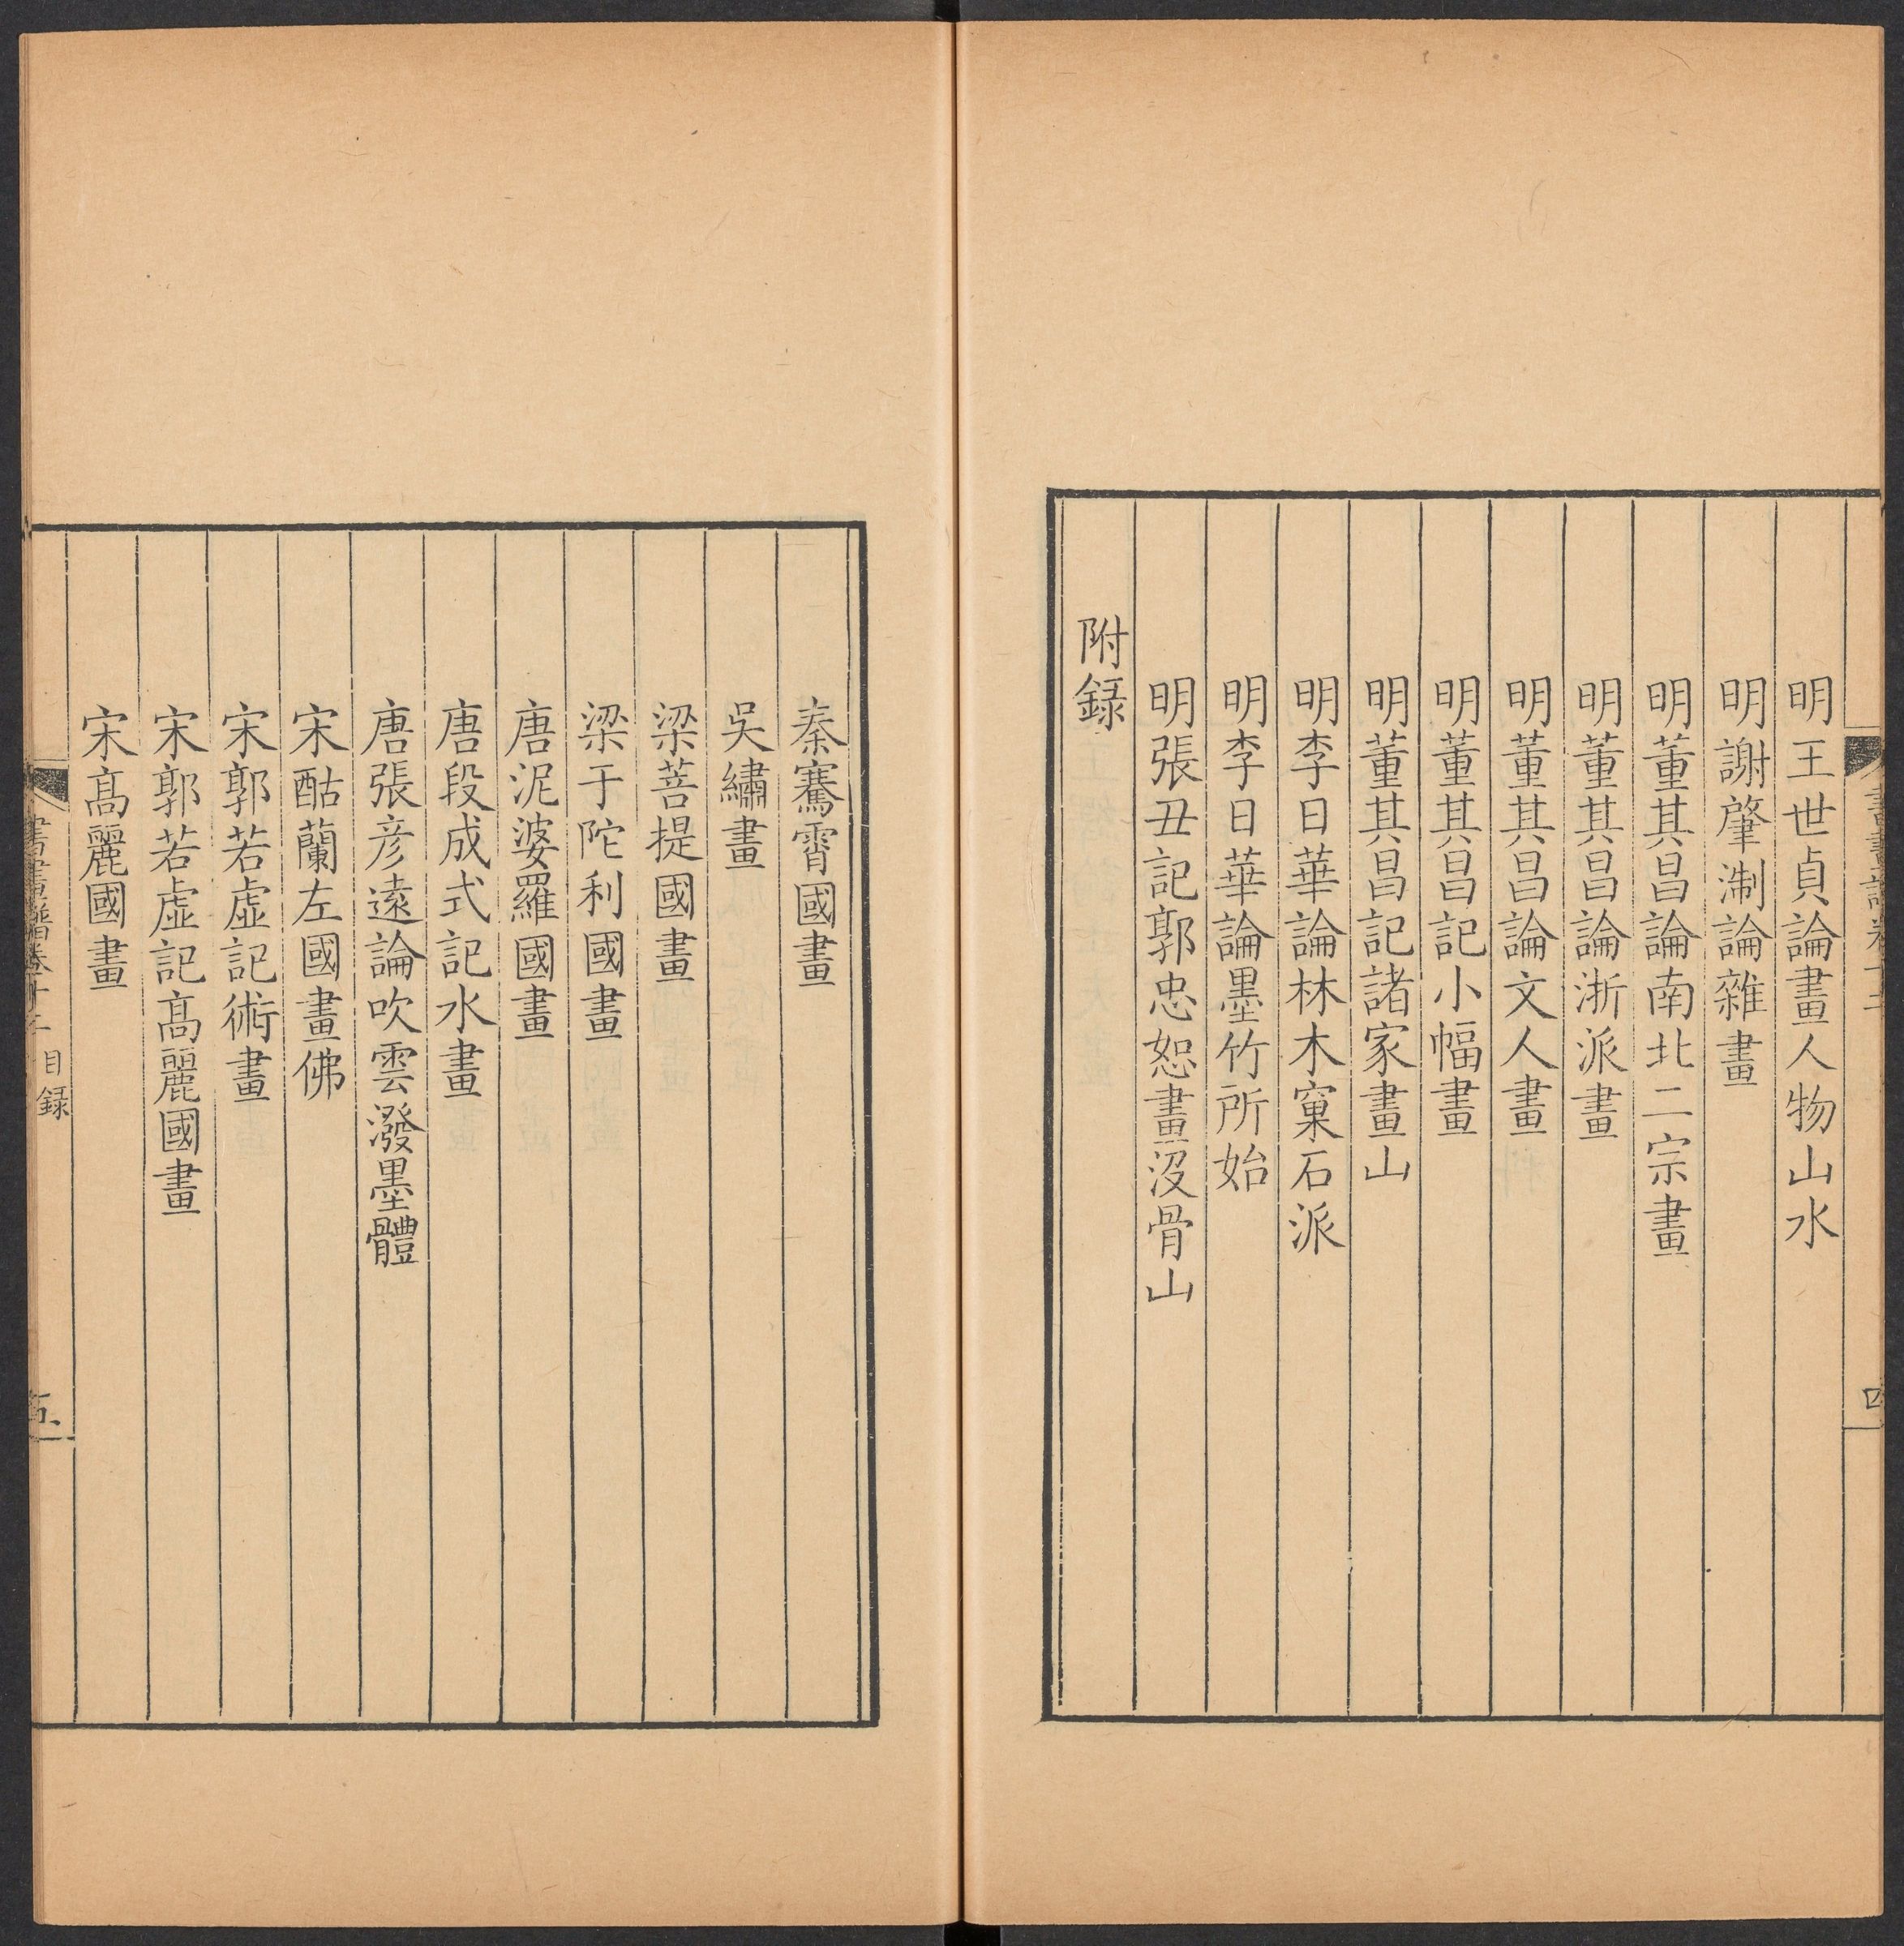 明王世貞論畫人物山水
明謝肇淛論雜畫
明董其昌論南北二宗畫
明董其昌論浙派畫
明董其昌論文人畫
明董其昌記小幅畫
明董其昌記諸家畫山
明李日華論林木窠石派
明李日華論墨竹所始
明張丑記郭忠恕畫沒骨山
附録
秦騫霄國畫
吳繡畫
梁菩提國畫
梁于陀利國畫
唐泥婆羅國畫
唐段成式記水畫
唐張彦遠論吹雲潑墨體
宋酤蘭左國畫佛
宋郭若虛記術畫
宋郭若虛記髙麗國畫
宋髙麗國畫
書畫譜卷十二 目録
五